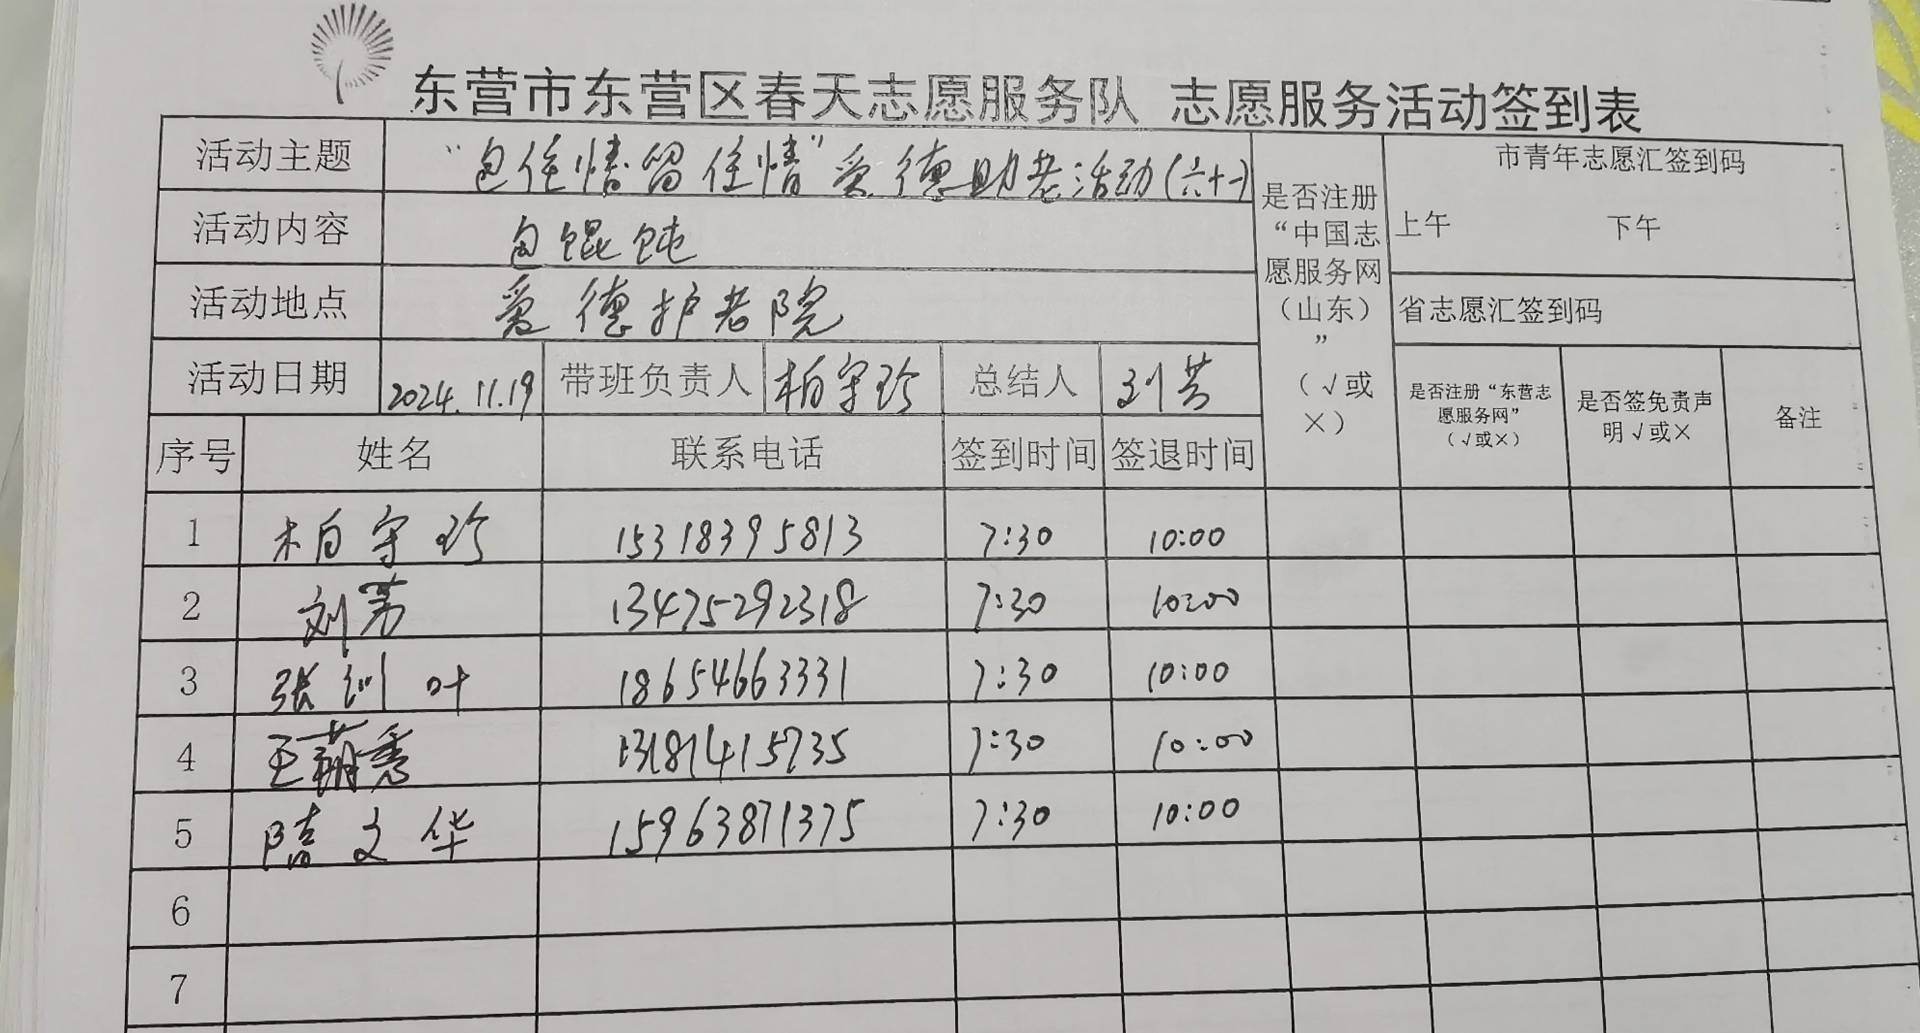 东营市东营区春天志愿服务队 志愿服务活动签到表
活动主题 “包住情留住情”爱德助老活动(六十一)
活动内容 包馄饨
活动地点 爱德护老院
活动日期 2024.11.19 带班负责人 柏守玲 总结人 刘芳
是否注册“中国志愿服务网（山东）”（√或×）
市青年志愿汇签到码
上午 下午
省志愿汇签到码
是否注册“东营志愿服务网”（√或×） 是否签免责声明√或× 备注
序号 姓名 联系电话 签到时间 签退时间
1 柏守玲 15318395813 7:30 10:00
2 刘芳 13475292318 7:30 10:00
3 张训叶 18654663331 7:30 10:00
4 王 13181415735 7:30 10:00
5 隋文华 15963871375 7:30 10:00
6
7